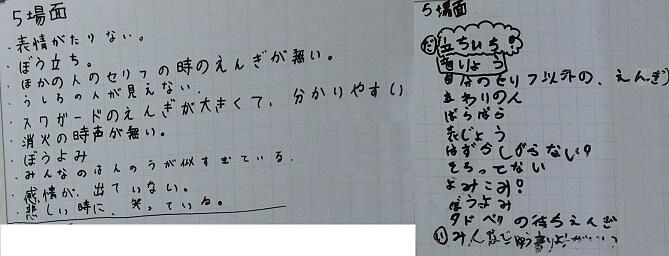 5場面
・表情がたりない。
・ぼう立ち。
・ほかの人のセリフの時のえんぎが無い。
・うしろの人が見えない.
・スワガードのえんぎが大きくて、分かりやすい
・消火の時声が無い。
・ぼうよみ
・みんなのはんのうが似すぎている.
・感情が、出ていない。
・悲しい時に、笑っている。
5場面
だ 立ちいち?
自分のセリフ以外の、えんぎ
まわりの人
ばらばら
表じょう
はずかしがらない?
そろってない
よみこみ?
ぼうよみ
タドベリの待ちえんぎ
い みんなで